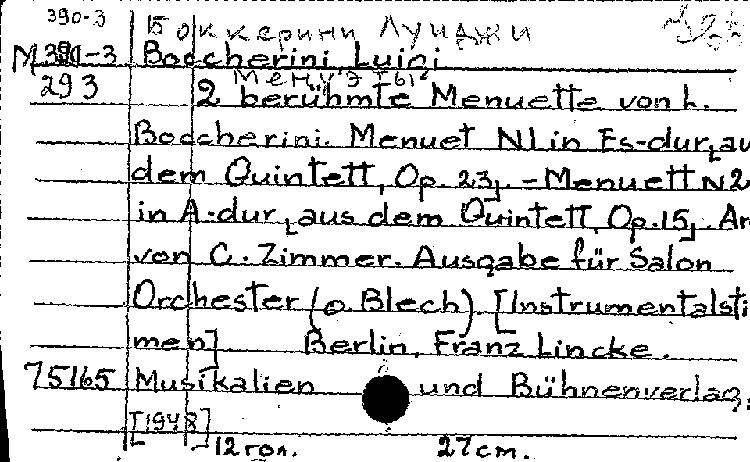 390-3 Боккерини Луиджи
M390-3 Boccherini Luigi
Менуэты
293 2 berühmte Menuette von L.
Boccherini. Menuet N1 in Es-dur, au
dem Quintett, Op. 23]. - Menuett N2
in A-dur [aus dem Quintett, Op. 15]. Ar
von C. Zimmer. Ausgabe für Salon
Orchester (o. Blech). [Instrumentalsti
men] Berlin, Franz Lincke.
75165 Musikalien und Bühnenverlag,
[1948]
12 гол. 27 cm.